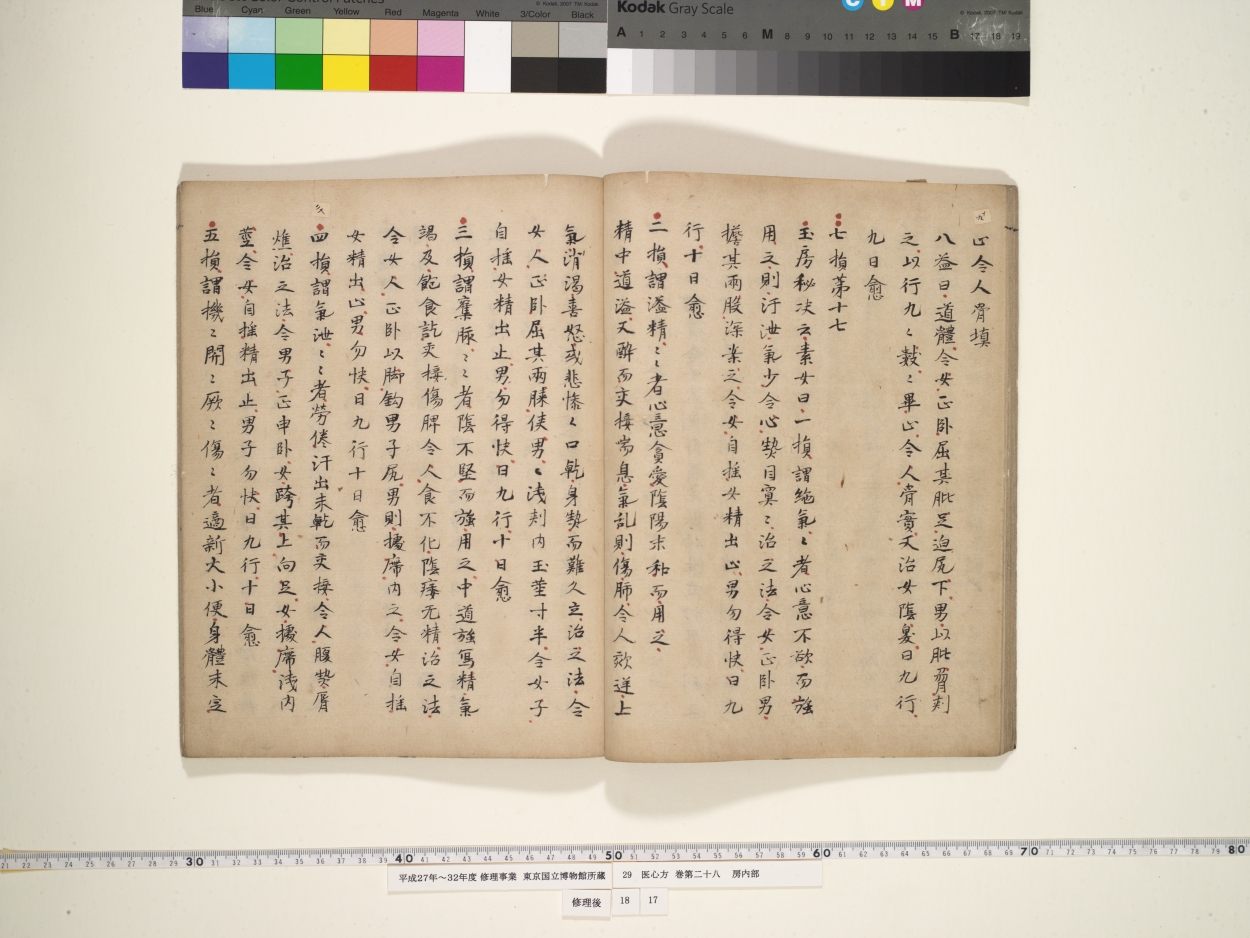 Blue Cyan Green Yellow Red Magenta White 3/Color Black
Kodak Gray Scale
C Y M
© Kodak, 2007 TM: Kodak
A 1 2 3 4 5 6 M 7 8 9 10 11 12 13 14 15 B 17 18 19
止令人骨填
八益曰道體令女正卧屈其䏶足迫尻下男以䏶脅刾
之以行九〻數〻畢止令人骨實又治女陰臭日九行
九日愈
七損第十七
玉房秘决云素女曰一損謂絶氣〻者心意不欲而強
用之則汗泄氣少令心熱目冥〻治之法令女正卧男
擔其兩股深案之令女自摇女精出止男勿得快日九
行十日愈
二損謂溢精〻者心意貪愛陰陽未和而用之
精中道溢又醉而交接喘息氣乱則傷肺令人欬逆上
氣消渴喜怒或悲慘〻口乾身熱而難久立治之法令
女人正卧屈其兩膝俠男〻淺刾内玉莖寸半令女子
自摇女精出止男勿得快日九行十日愈
三損謂奪脉〻者陰不堅而強用之中道強寫精氣
竭及飽食訖交接傷脾令人食不化陰痿无精治之法
令女人正卧以脚鈎男子尻男則據席内之令女自摇
女精出止男勿快日九行十日愈
四損謂氣泄〻者勞倦汗出未乾而交接令人腹熱脣
燋治之法令男子正申卧女跨其上向足女據席淺内
莖令女自摇精出止男子勿快日九行十日愈
五損謂機〻開〻厥〻傷〻者適新大小便身體未定
30 40 50 60 70 80
平成27年～32年度 修理事業 東京国立博物館所蔵
29 医心方 巻第二十八 房内部
修理後 18 17